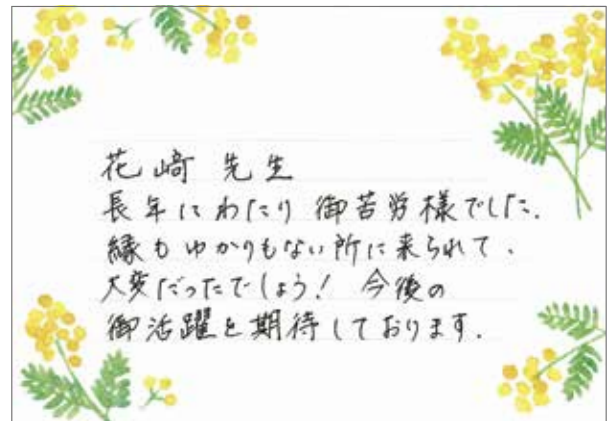 花﨑 先生
長年にわたり 御苦労様でした.
縁もゆかりもない所に来られて、
大変だったでしょう! 今後の
御活躍を期待しております.